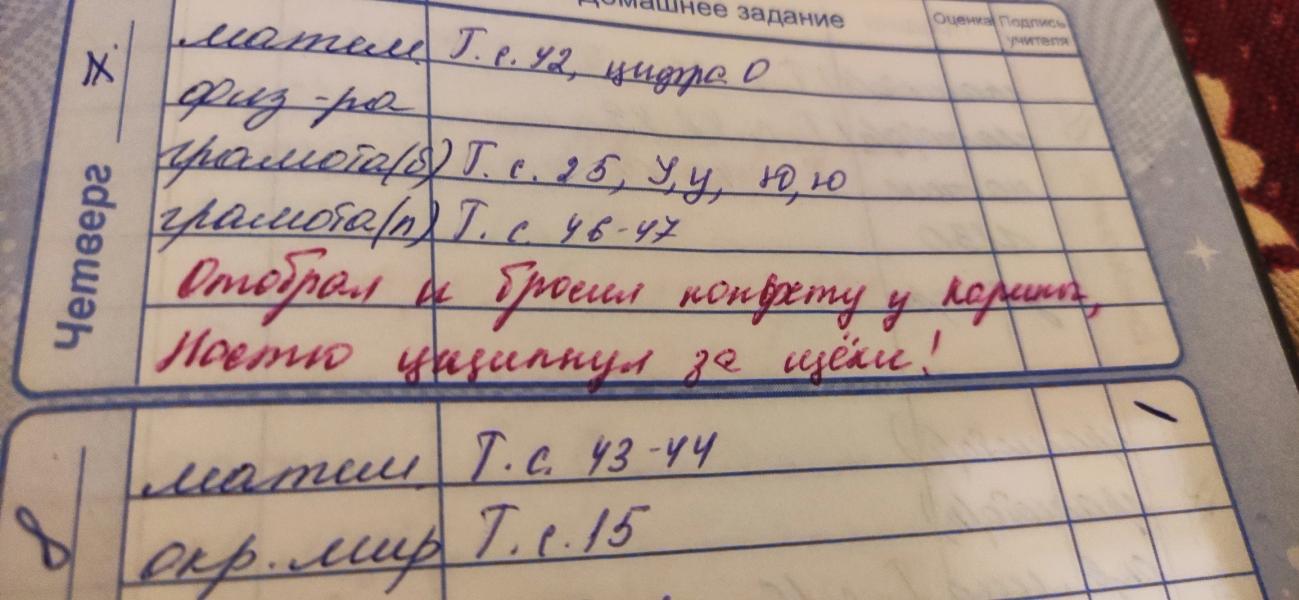 Домашнее задание Оценка Подпись учителя
матем Т. с. 42, цифра 0
физ-ра
грамота(б) Т. с. 25, У,у, Ю,ю
грамота(п) Т. с. 46-47
Четверг
Отобрал и бросил конфету у Карины,
Настю щипнул за щёки!
матем Т. с. 43-44
окр. мир Т. с. 15
8